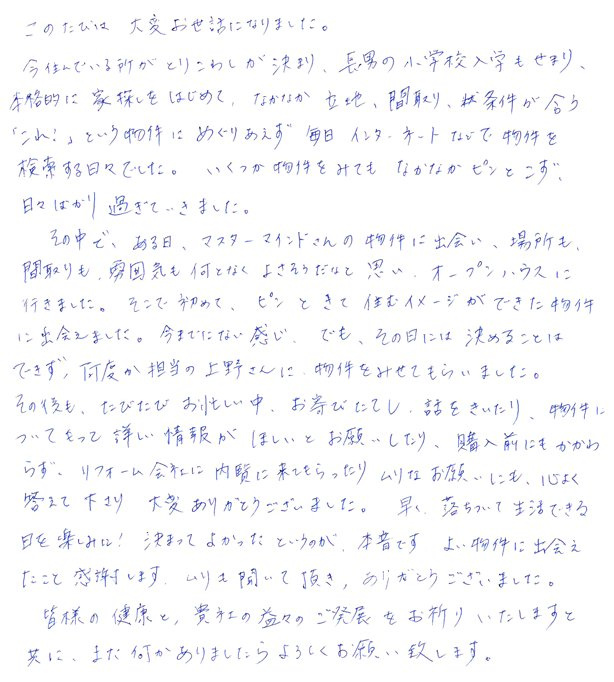 このたびは 大変お世話になりました。
今住んでいる所がとりこわしが決まり、長男の小学校入学もせまり、
本格的に家探しをはじめて、なかなか立地、間取り、状条件が合う
「これ！」という物件にめぐりあえず 毎日インターネートなどで物件を
検索する日々でした。 いくつか物件をみても なかなかピンとこず、
日々ばかり過ぎていきました。
その中で、ある日、マスターマインドさんの物件に出会い、場所も、
間取りも、雰囲気も何となくよさそうだなと思い、オープンハウスに
行きました。そこで初めて、ピンときて住むイメージができた物件
に出会えました。今までにない感じ、でも、その日には決めることは
できず、何度か担当の上野さんに、物件をみせてもらいました。
その後も、たびたびお忙しい中、お呼びたてし、話をきいたり、物件に
ついてもっと詳しい情報がほしいとお願いしたり、購入前にもかかわ
らず、リフォーム会社に内覧に来てもらったりムリなお願いにも、心よく
答えて下さり 大変ありがとうございました。 早く、落ちついて生活できる
日を楽しみに！ 決まってよかったというのが、本音です よい物件に出会え
たこと感謝します。ムリも聞いて頂き、ありがとうございました。
皆様の健康と、貴社の益々のご発展をお祈りいたしますと
共に、また何かありましたらよろしくお願い致します。